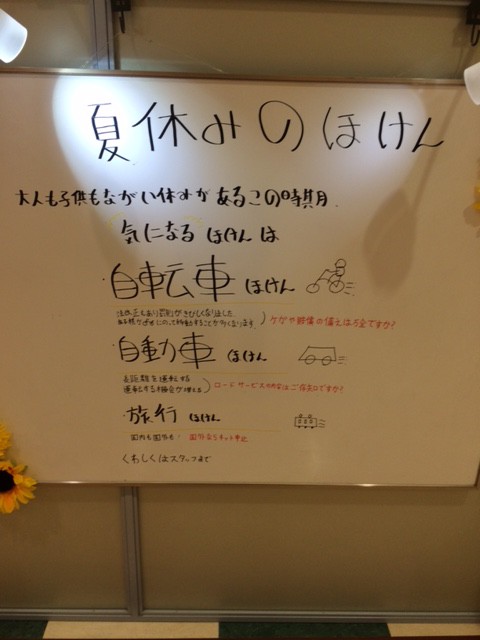 夏休みのほけん
大人も子供もながい休みがあるこの時期
気になる ほけん は
自転車 ほけん
法改正もあり罰則がきびしくなりました
ケガや賠償の備えは万全ですか?
自動車 ほけん
長距離を運転する
運転する機会が増える
ロードサービスの内容はご存知ですか?
旅行 ほけん
国内も国外も
くわしくはスタッフまで